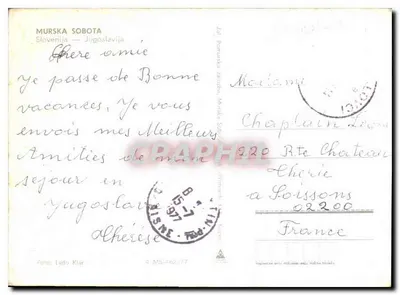 MURSKA SOBOTA
Slovenija — Jugoslavija
Chere amie
Je passe de Bonne
vacances, Je vous
envois mes Meilleurs
Amities de mon
sejour en
Yugoslav
Thérèse
Madame
Chaplain Leon
220 Rte Chateau
Thierie
a Soissons
02200
France
15-7
1977
AISNE